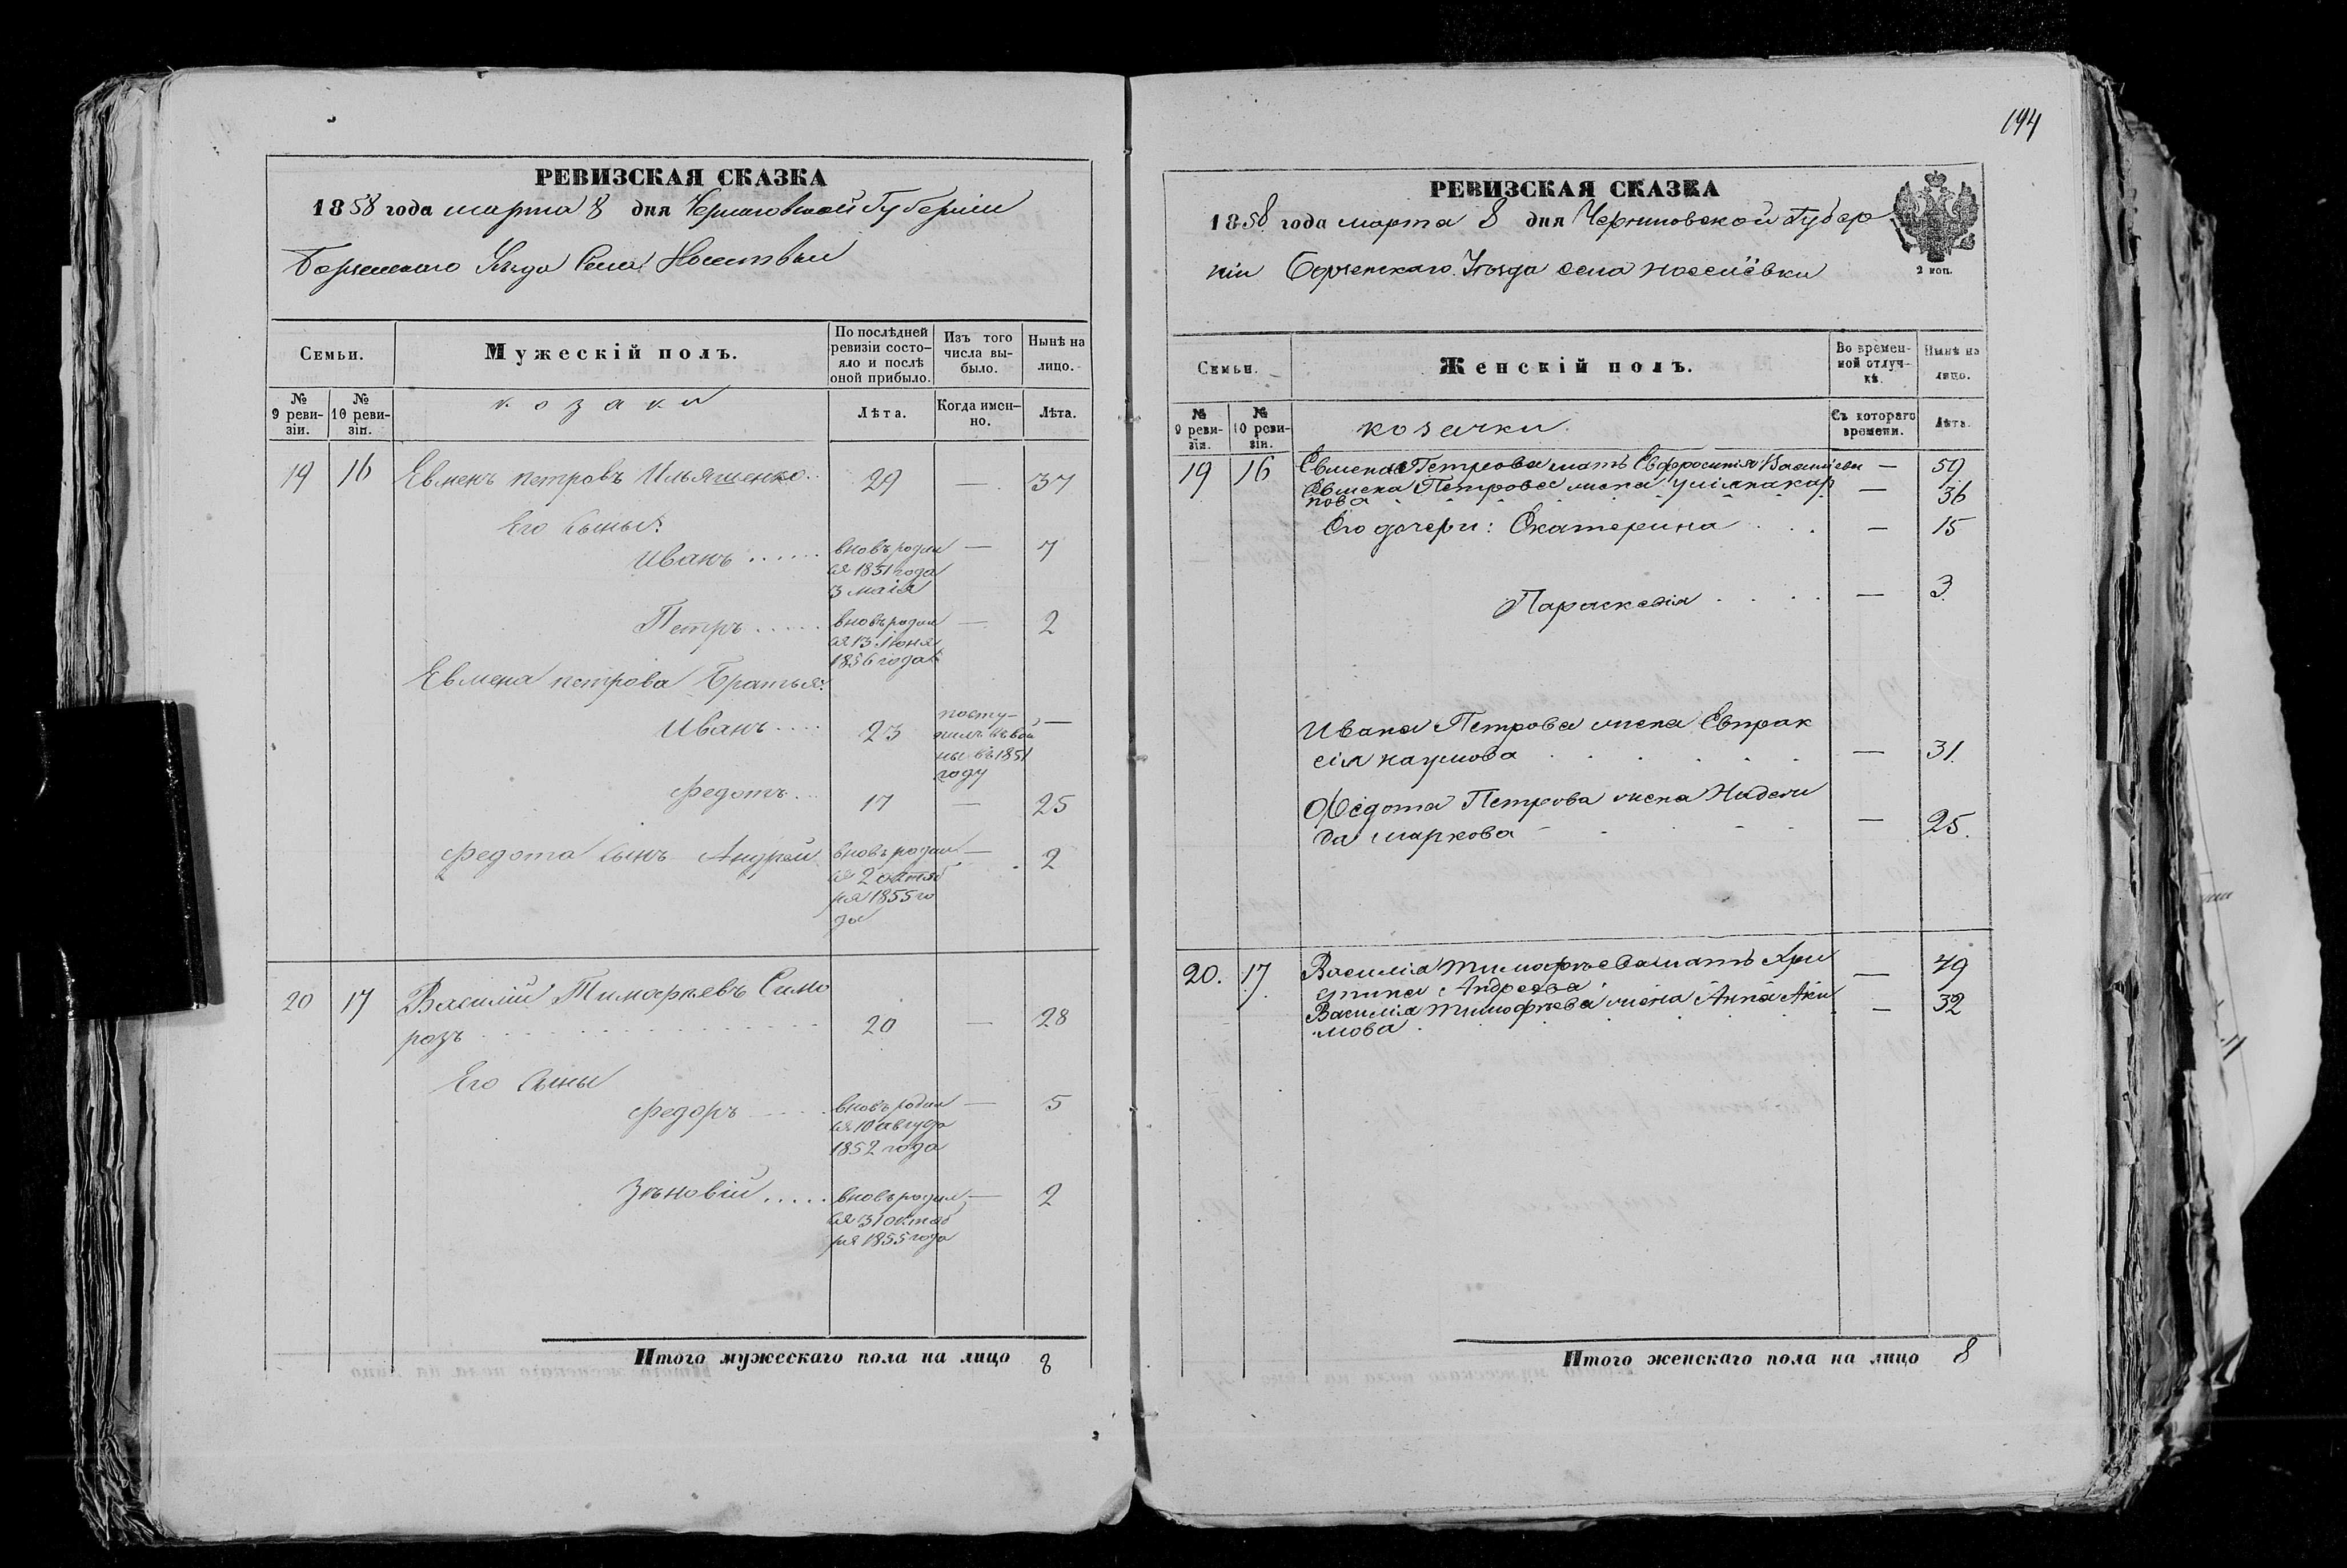 РЕВИЗСКАЯ СКАЗКА
1858 года марта 8 дня Черниговской Губерніи
Борзенскаго Уѣзда Села
Семьи.
Мужескій полъ.
По послѣдней ревизіи состояло и послѣ оной прибыло.
Изъ того числа выбыло.
Нынѣ на лицо.
№ 9 ревизіи.
№ 10 ревизіи.
козаки
Лѣта.
Когда именно.
Лѣта.
19 16 Евменъ петровъ Ильяшенко 29 — 37
Его сыны:
Иванъ вновь родил — 7
ся 1851 года
3 маія
Петръ вновь родил — 2
ся 13 Июня
1856 года
Евмена петрова Братья:
Иванъ 23 —
посту-
пилъ въ вои
ны въ 1851
году
Федотъ 17 — 25
Федота сынъ Андрей вновь родил — 2
ся 2 октяб
ря 1855 го
да
20 17 Василій Тимофѣевъ Сико
розъ 20 — 28
Его сыны
Федоръ вновь родил — 5
ся 10 августа
1852 года
Зѣновій вновь родил — 2
ся 31 октяб
ря 1855 года
Итого мужескаго пола на лицо 8
194
РЕВИЗСКАЯ СКАЗКА
1858 года марта 8 дня Черниговской Губер
ніи Борзенскаго Уѣзда села
2 коп.
Семьи.
Женскій полъ.
Во временной отлучкѣ.
Нынѣ на лицо.
№ 9 ревизіи.
№ 10 ревизіи.
козачки
Съ котораго времени.
Лѣта.
19 16 Евмена Петрова мать Евфросинія Василіева — 59
Евмена Петрова жена Уліяна кар
пова — 36
Его дочери: Екатерина — 15
Параскевія — 3
Ивана Петрова жена Евпрак
сія наумова — 31.
Ѳедота Петрова жена Надеж
да маркова — 25.
20. 17. Василія тимофѣева мать Хри
стина Андреева — 49
Василія тимофѣева жена Анна Аки
мова — 32
Итого женскаго пола на лицо 8